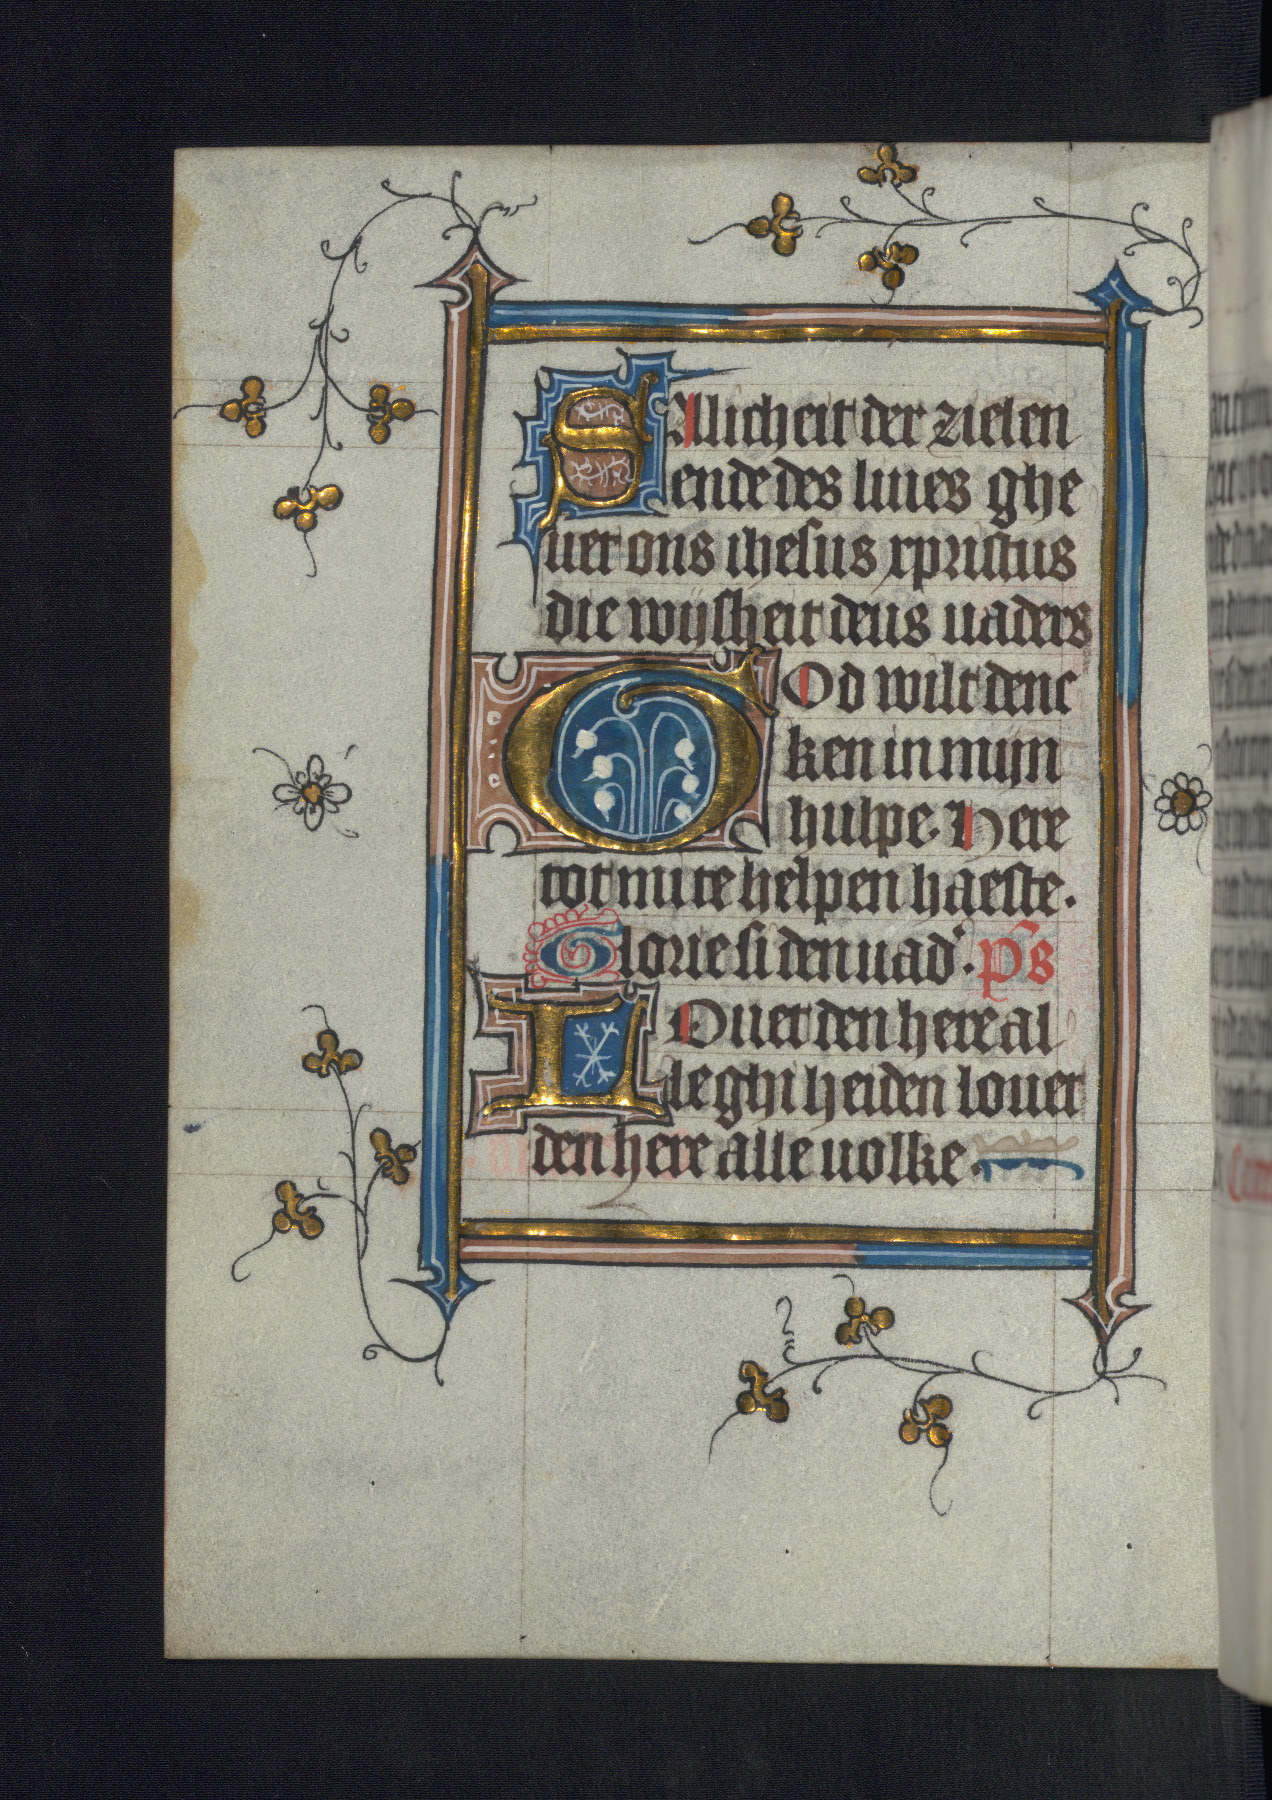 SAlicheit der zielen
ende des liues ghe
uet ons ihesus xpristus
die wijsheit deus uaders
GOd wilt denc
ken in mijn
hulpe. Here
tot mi te helpen haeste.
Glorie si den uad'. ps
LOuet den here al
le ghi heiden louet
den here alle uolke.